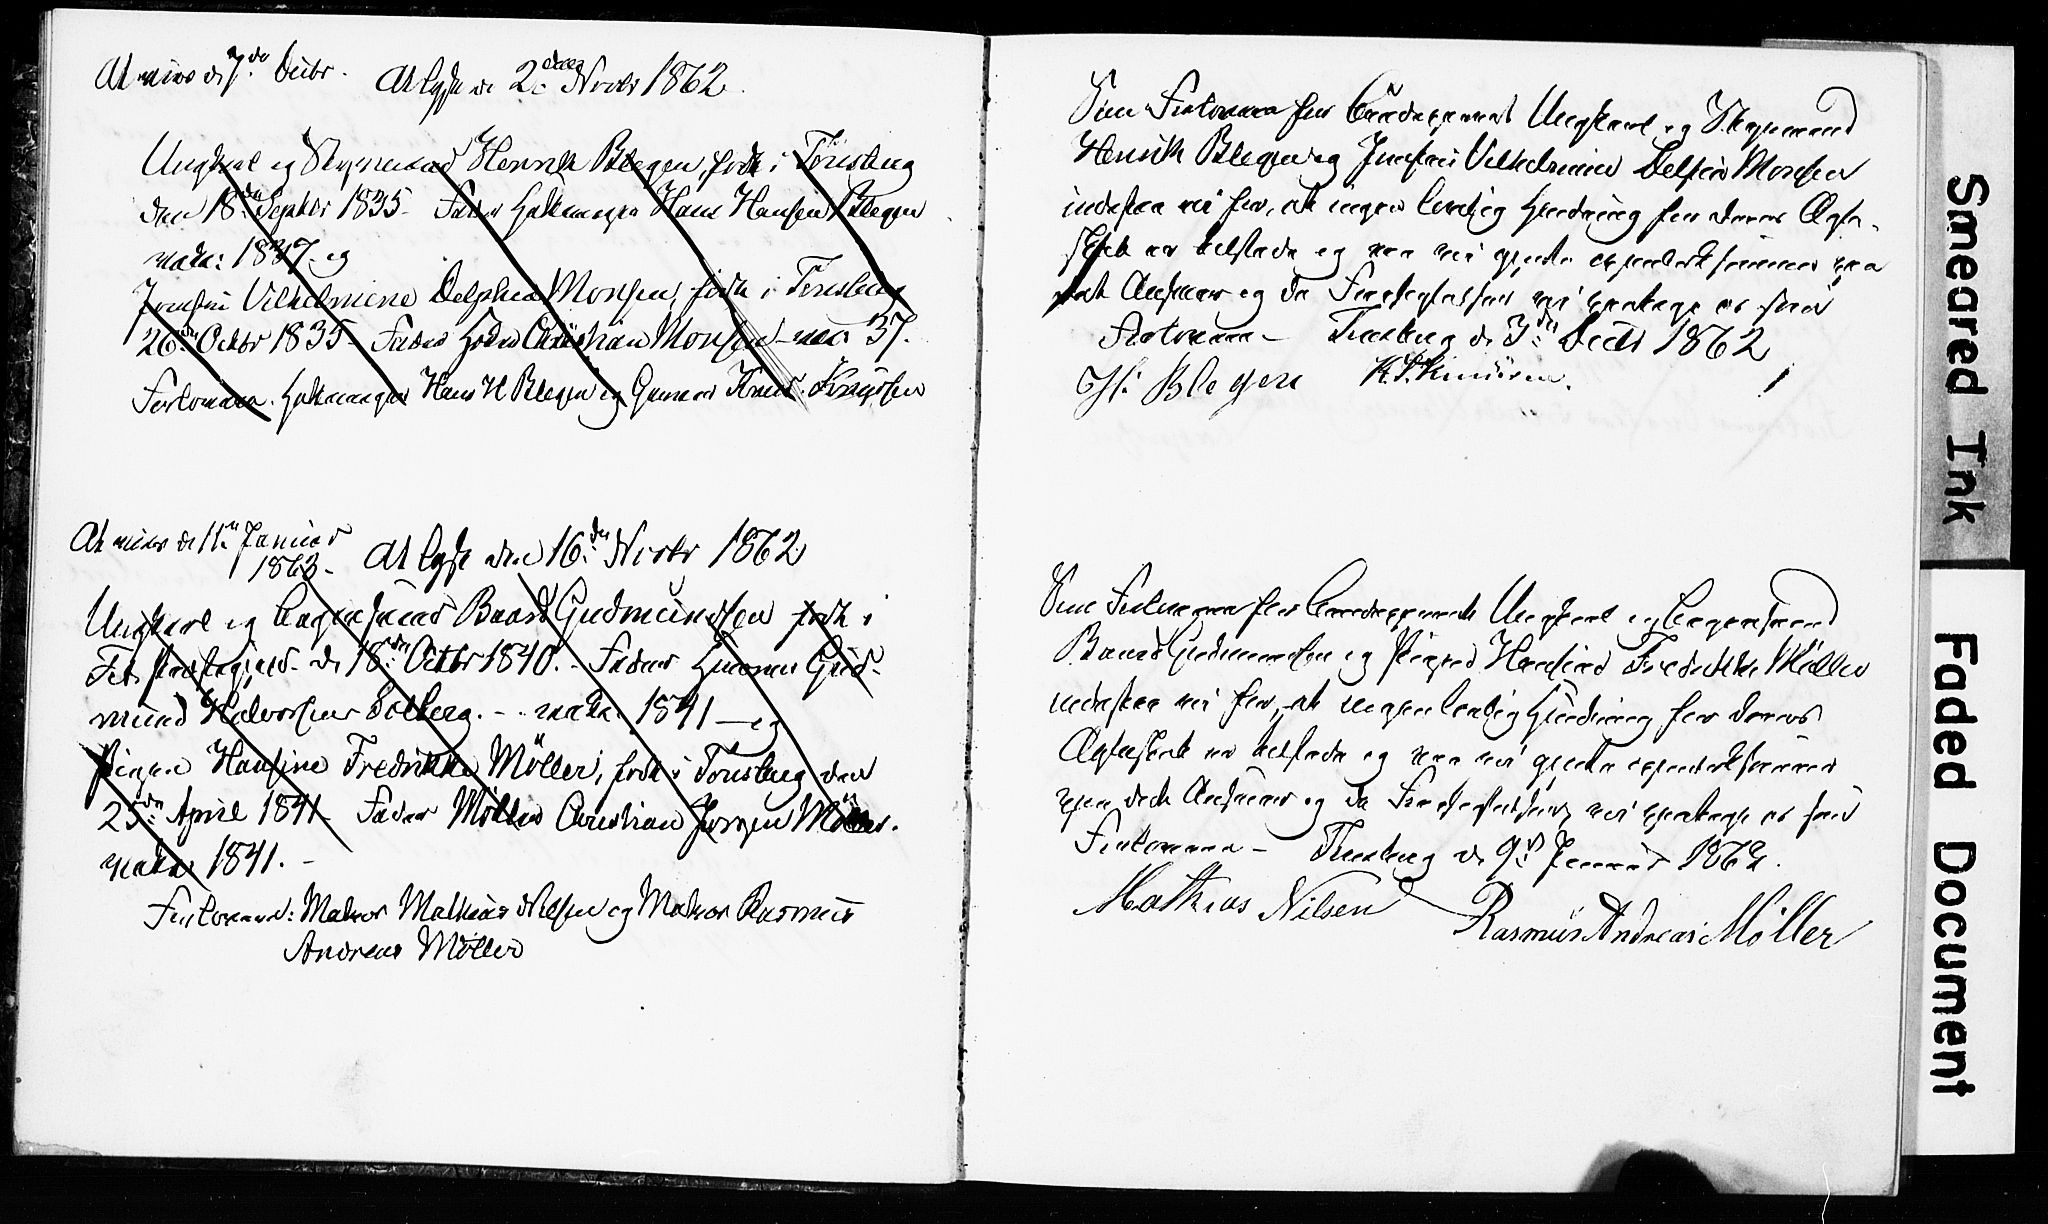 At vies d 7de Decbr. At lyse d 2den Novbr 1862.
Ungkarl og Skipmand Henrik Blegen, födt i Tönsberg
den 18de Septbr 1835 - Fader Hattemager Hans Hansen Blegen
vacc: 1837. og
Jomfru Vilhelmine Delphin Monsen, födt i Tönsberg
26de Octbr 1835 - Fader Christian Monsen - vac 37.
Forlovere. Hattemager Hans H Blegen og Knud Knudsen
At vies d 11te Januar
1863 - At lyse den 16de Novbr 1862
Ungkarl og Baard Gudmundsen födt i
d 18de Octbr 1840. - Fader Gud-
mund Halvorsen Solberg. - vacc. 1841 - og
Pigen Hansine Fredrikke Möller, födt i Tönsberg den
25de April 1841 - Fader Christian Jörgen Möller.
vacc. 1841. -
Forlovere: Matros Mathias Nilsen og Matros Rasmus
Andreas Möller
Som Forlovere for Brudeparret Ungkarl og
Henrik Blegen og Jomfru Vilhelmine Delfin Monsen
indestaa vi for, at ingen lovlig Hindring for deres Ægte-
skab er tilstede og naar vi gjöre opmærksomme paa
det Ansvar og de Forpligtelser vi paatage os som
Forlovere - Tönsberg d. Decbr 1862
H. Blegen K. Knudsen.
Som Forlovere for Brudeparret Ungkarl og
Baard Gudmundsen og Pigen Hansine Fredrikke Möller
indestaa vi for, at ingen lovlig Hindring for deres
Ægteskab er tilstede og naar vi gjöre opmærksomme
paa dette Ansvar og de Forpligtelser, vi paatage os som
Forlovere - Tönsberg d. 9de Januar
Mathias Nilsen Rasmus Andreas Möller
Smeared Ink
Faded Document